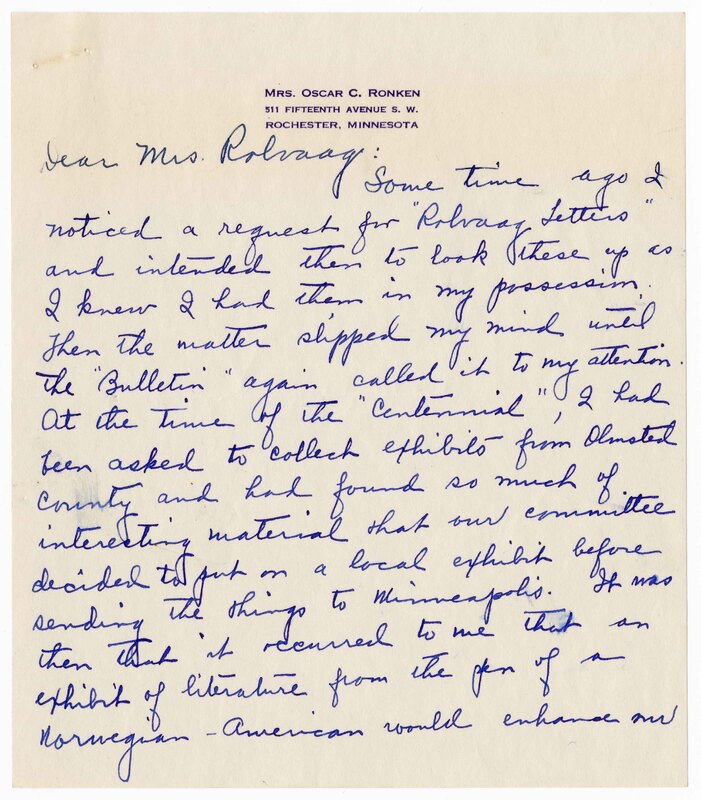 MRS. OSCAR C. RONKEN
511 FIFTEENTH AVENUE S. W.
ROCHESTER, MINNESOTA
Dear Mrs. Rolvaag:
Some time ago I
noticed a request for "Rolvaag Letters"
and intended then to look these up as
I knew I had them in my possession.
Then the matter slipped my mind until
the "Bulletin" again called it to my attention.
At the time of the "Centennial", I had
been asked to collect exhibits from Olmsted
County and had found so much of
interesting material that our committee
decided to put on a local exhibit before
sending the things to Minneapolis. It was
then that it occurred to me that an
exhibit of literature from the pen of a
Norwegian-American would enhance our